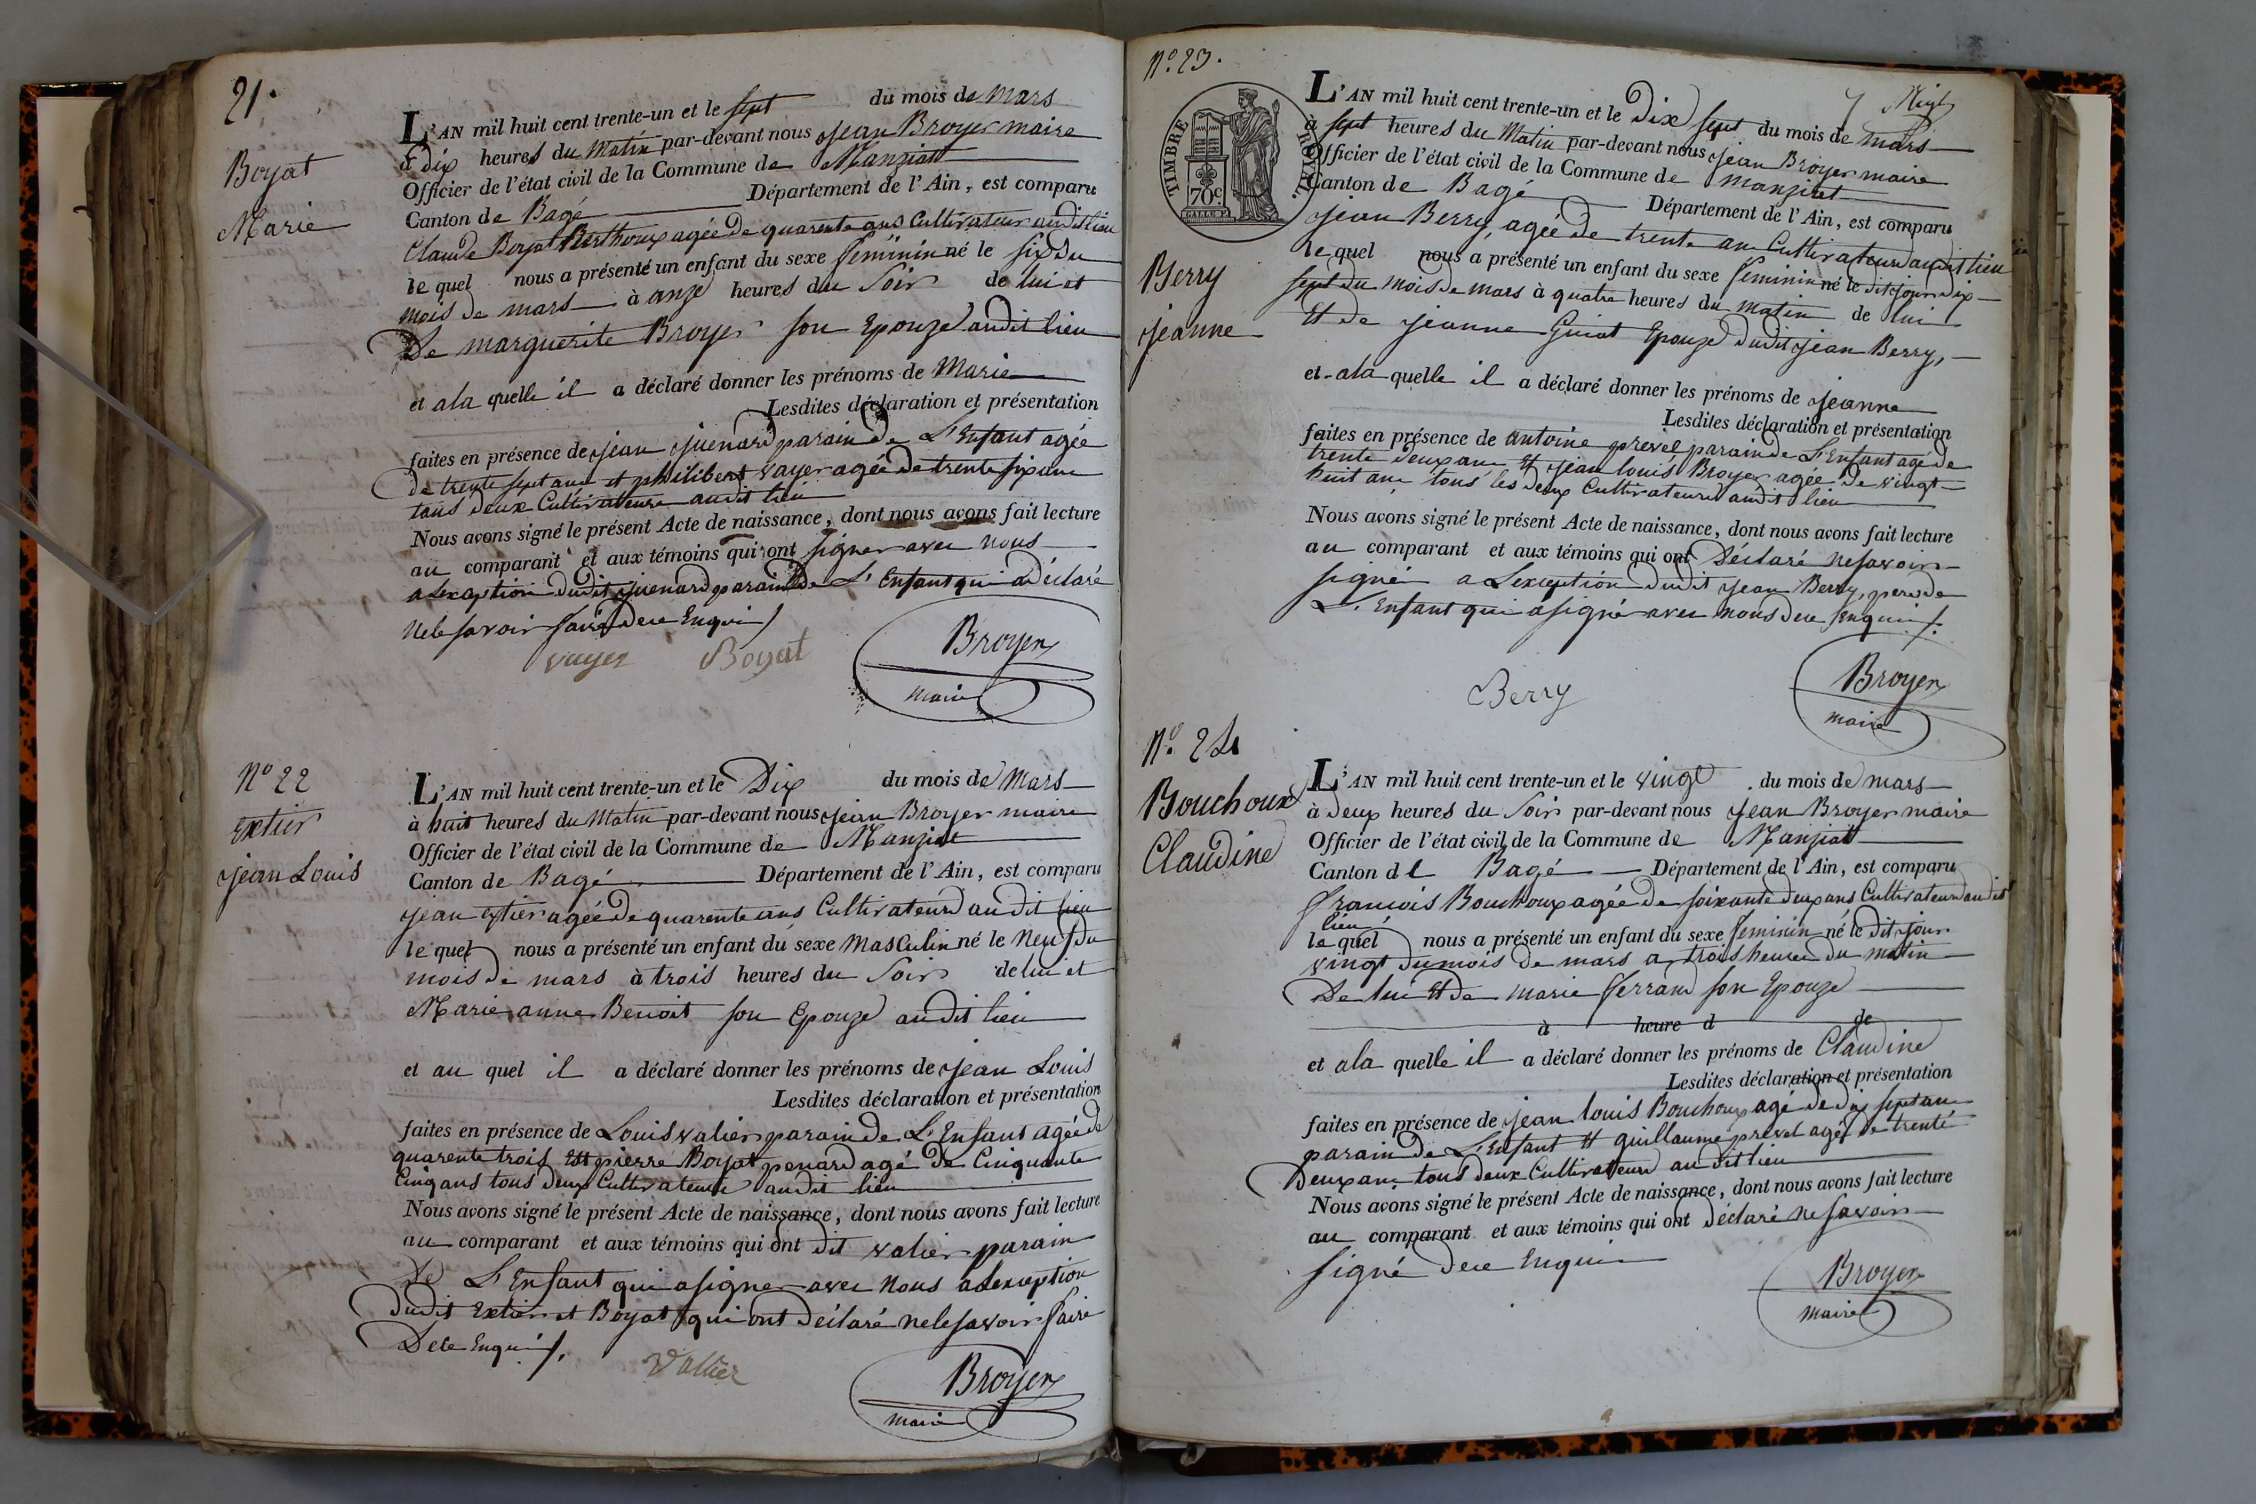 21.
Boyat
Marie
L'AN mil huit cent trente-un et le sept du mois de Mars
à dix heures du Matin par-devant nous jean Broyer maire
Officier de l'état civil de la Commune de Manziat
Canton de Bagé Département de l'Ain, est comparu
Claude Boyat Berthoux agée de quarente ans Cultivateur audit lieu
le quel nous a présenté un enfant du sexe feminin né le six du
mois de mars à onze heures du Soir de lui et
De marguerite Broyer son Epouze audit lieu
et a la quelle il a déclaré donner les prénoms de Marie
Lesdites déclaration et présentation
faites en présence de jean juenard parain de L'Enfant agée
de trente sept ans et philibert vayer agée de trente six ans
tous deux Cultivateurs audit lieu
Nous avons signé le présent Acte de naissance, dont nous avons fait lecture
au comparant et aux témoins qui ont signer avec nous
a Lexception dudit juenard parain de L'Enfant qui a déclaré
ne le savoir faire de ce Enqui /
vayer Boyat Broyer
maire
N° 22
Extier
jean Louis
L'AN mil huit cent trente-un et le Dix du mois de Mars
à huit heures du Matin par-devant nous jean Broyer maire
Officier de l'état civil de la Commune de Manziat
Canton de Bagé Département de l'Ain, est comparu
jean extier agée de quarente ans Cultivateur audit lieu
le quel nous a présenté un enfant du sexe masculin né le neuf du
mois de mars à trois heures du Soir de lui et
Marie anne Benoit son Epouze audit lieu
et au quel il a déclaré donner les prénoms de jean Louis
Lesdites déclaration et présentation
faites en présence de Louis valier parain de L'Enfant agée de
quarente trois Et pierre Boyat penard agé de Cinquante
Cinq ans tous deux Cultivateurs audit lieu
Nous avons signé le présent Acte de naissance, dont nous avons fait lecture
au comparant et aux témoins qui ont dit valier parain
de L'Enfant qui a signer avec nous a Lexception
dudit Extier et Boyat qui ont déclaré ne le savoir faire
De ce Enqui /.
Vallier Broyer
maire
N° 23.
7
TIMBRE ROYAL
70c
L'AN mil huit cent trente-un et le Dix sept du mois de mars
à sept heures du Matin par-devant nous jean Broyer maire
Officier de l'état civil de la Commune de Manziat
Canton de Bagé Département de l'Ain, est comparu
jean Berry, agée de trente an Cultivateur audit lieu
Berry
jeanne
le quel nous a présenté un enfant du sexe feminin né le dit jour dix
sept du mois de mars à quatre heures du matin de lui
Et de jeanne Guiot Epouze dudit jean Berry,
et a la quelle il a déclaré donner les prénoms de jeanne
Lesdites déclaration et présentation
faites en présence de antoine prevel parain de L'Enfant agé de
trente deux an Et jean louis Broyer agée de vingt
huit an tous les deux Cultivateurs audit lieu
Nous avons signé le présent Acte de naissance, dont nous avons fait lecture
au comparant et aux témoins qui ont déclaré ne savoir
signé a Lexception dudit jean Berry, pere de
L'Enfant qui a signé avec nous de ce Enqui /.
Berry Broyer
maire
N° 24
Bouchoux
Claudine
L'AN mil huit cent trente-un et le vingt du mois de mars
à deux heures du Soir par-devant nous jean Broyer maire
Officier de l'état civil de la Commune de Manziat
Canton de Bagé Département de l'Ain, est comparu
francois Bouchoux agée de soixante deux ans Cultivateur audit
lieu
le quel nous a présenté un enfant du sexe feminin né le dit jour
vingt du mois de mars a trois heures du matin
De lui Et de marie ferrand son Epouze
à heure d de
et a la quelle il a déclaré donner les prénoms de Claudine
Lesdites déclaration et présentation
faites en présence de jean louis Bouchoux agé de dix sept an
parain de L'Enfant Et guillaume prevel agée de trente
Deux an tous deux Cultivateurs audit lieu
Nous avons signé le présent Acte de naissance, dont nous avons fait lecture
au comparant et aux témoins qui ont déclaré ne savoir
signé de ce Enqui
Broyer
maire